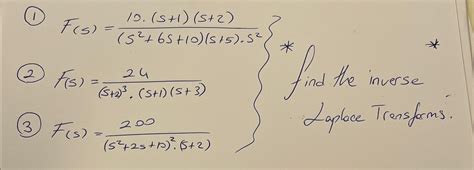 ① F(s) = 10.(s+1)(s+2) / (s²+6s+10)(s+5).s²
② F(s) = 24 / (s+2)³.(s+1)(s+3)
③ F(s) = 200 / (s²+2s+10)².(s+2)
* find the inverse *
Laplace Transforms.